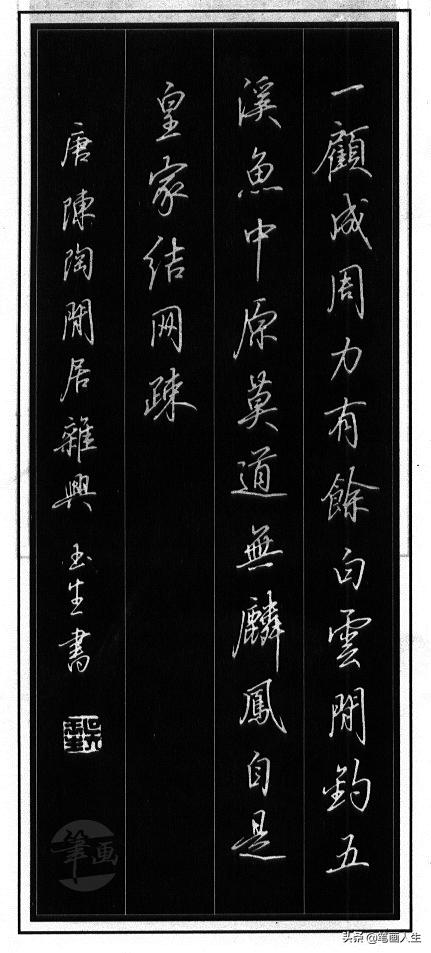 一顧成周力有餘白雲閒釣五
溪魚中原莫道無麟鳳自是
皇家結网疎
唐陳陶閒居雜興 玉生書
筆画
头条@笔画人生